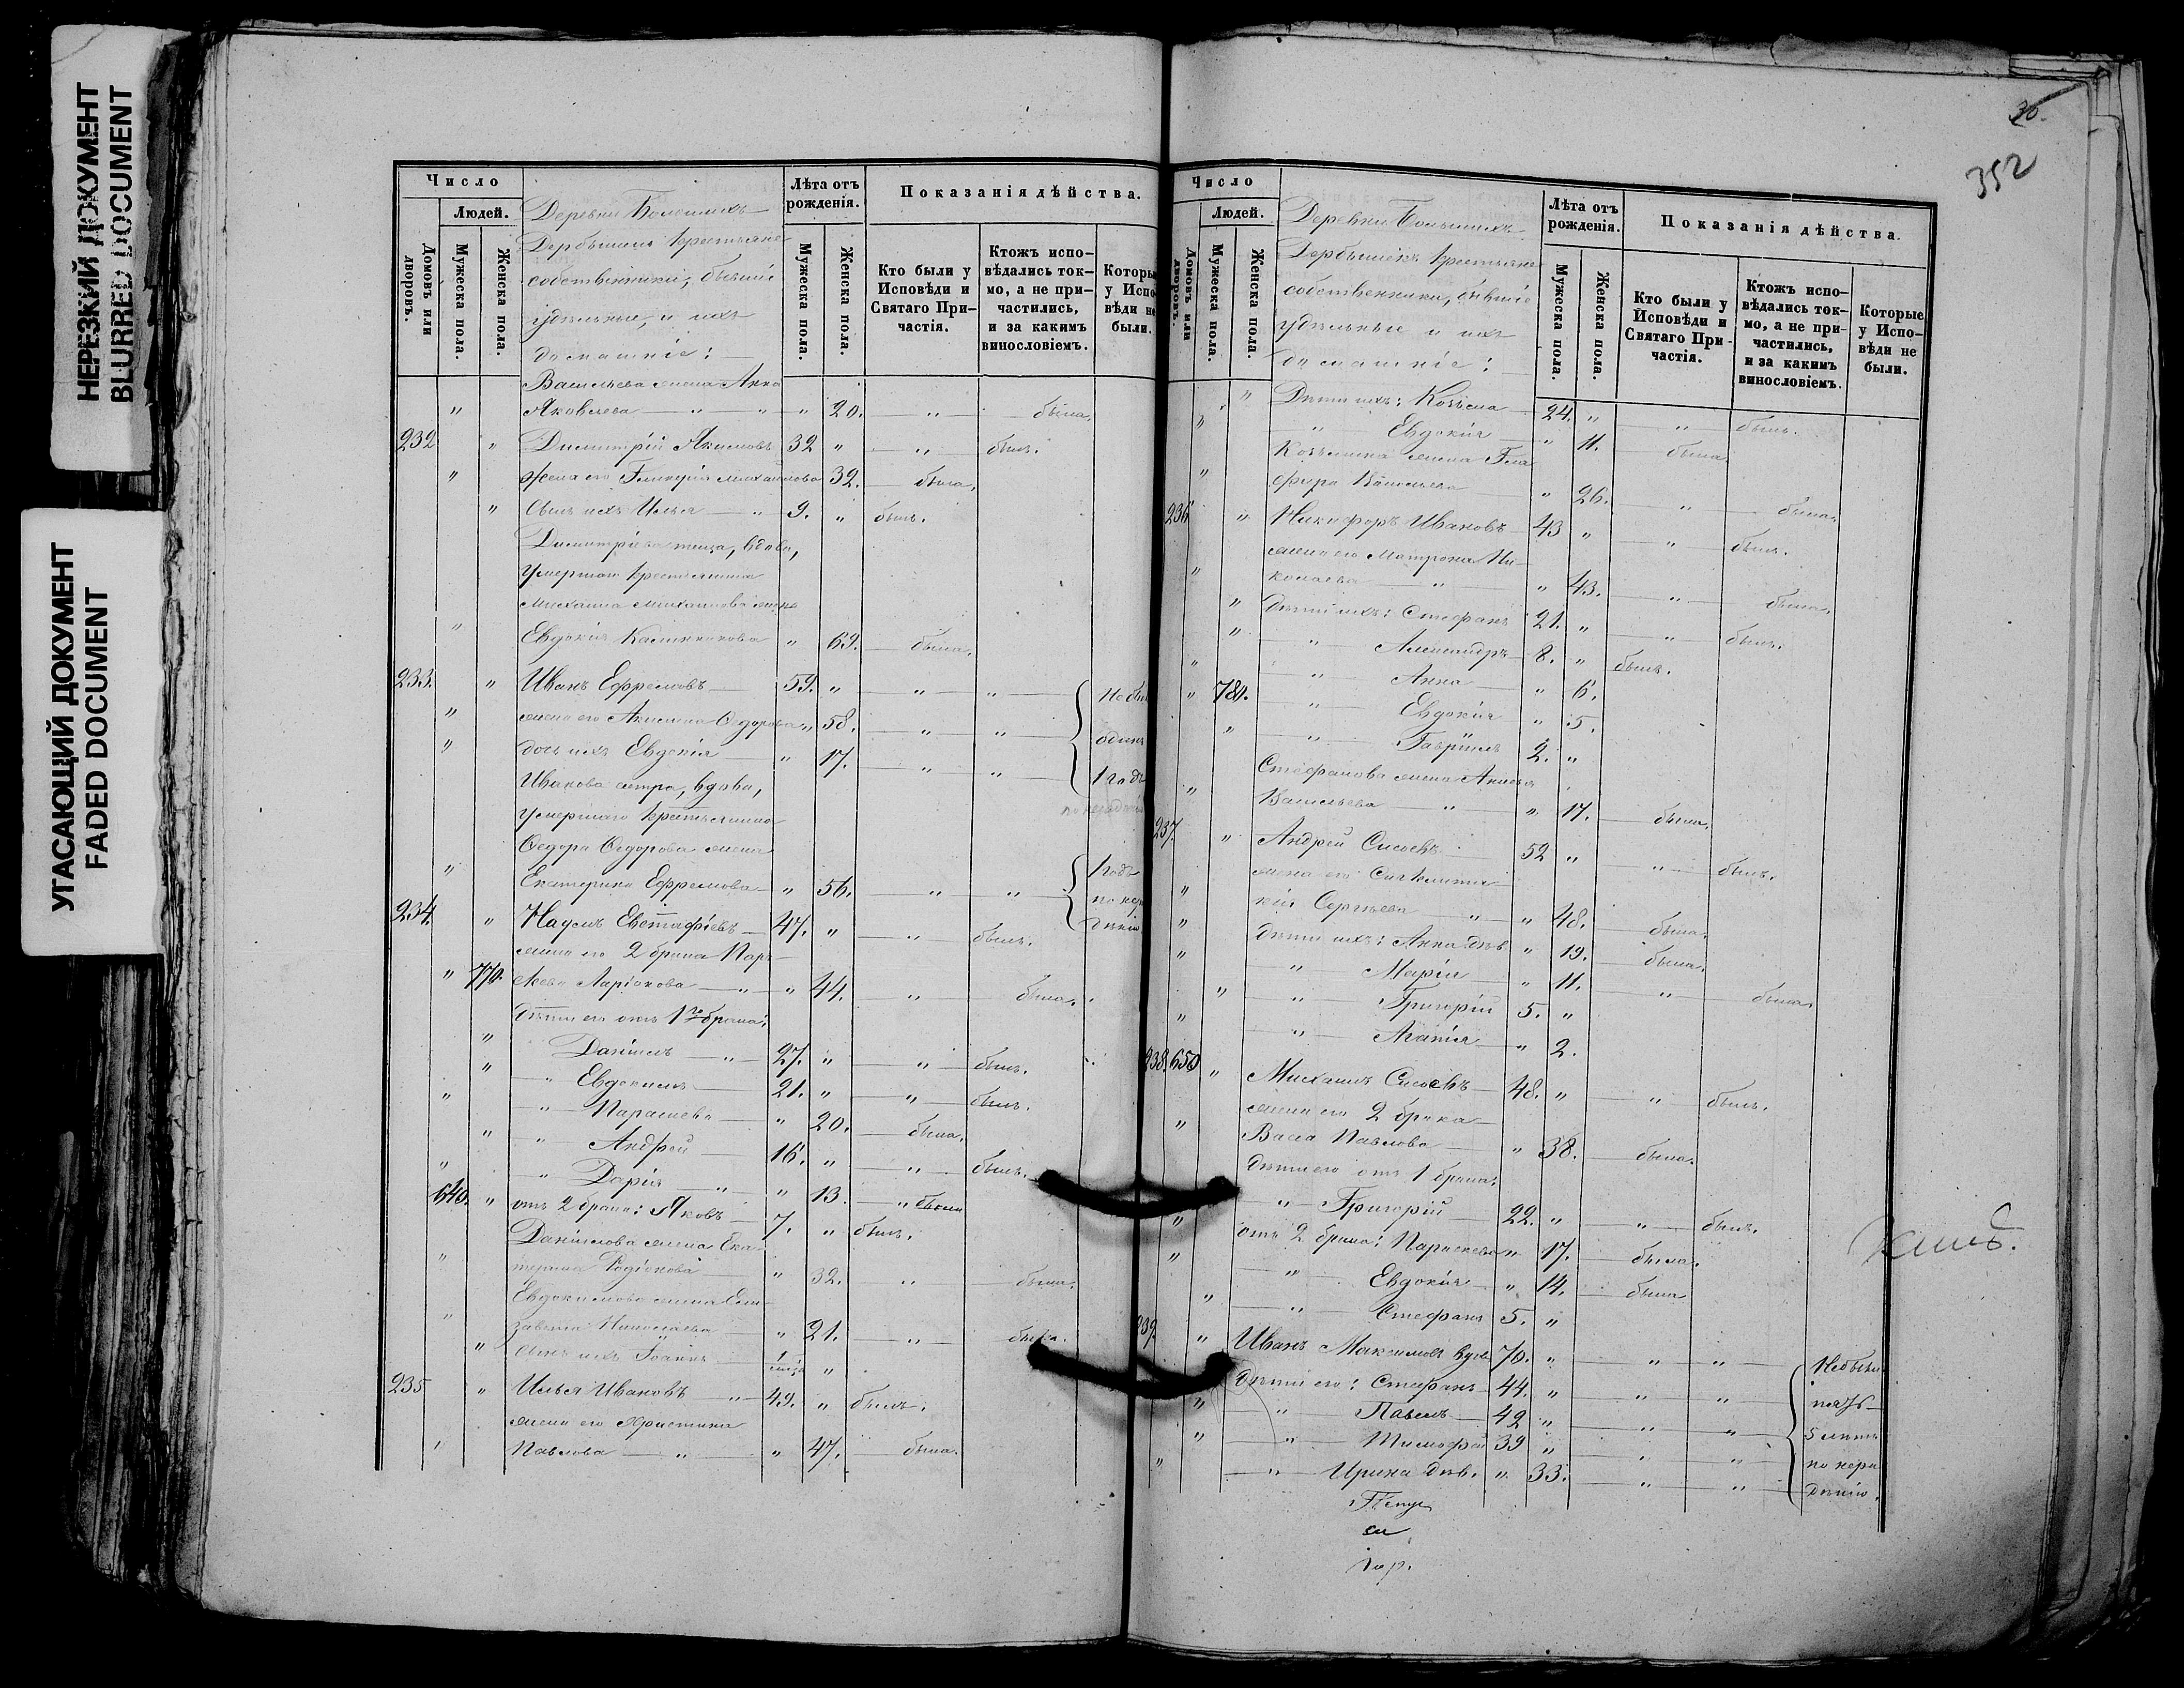 НЕРЕЗКИЙ ДОКУМЕНТ
BLURRED DOCUMENT
УГАСАЮЩИЙ ДОКУМЕНТ
FADED DOCUMENT
Число
Людей.
Домовъ или дворовъ.
Мужеска пола.
Женска пола.
Деревни Большихъ
Дербышекъ крестьяне
собственники, бывшіе
удѣльные, и ихъ
домашніе:
Лѣта отъ рожденія.
Мужеска пола.
Женска пола.
Показанія дѣйства.
Кто были у Исповѣди и Святаго Причастія.
Ктожъ исповѣдались токмо, а не причастились, и за какимъ винословіемъ.
Которы у Испо вѣди не были.
Васильева жена Анна
" Яковлева — " — " — " 20. — " — была.
232 " Димитрій Якимовъ 32 " — " — былъ.
" Жена его Гликерія Михайлова 32. — была.
" Сынъ ихъ Илья — " 9. " былъ.
Димитріева теща, вдова,
умершаго крестьянина
Михаила Михайлова жена
" Евдокія Калинникова " 69. — была.
233. " Иванъ Ефремовъ 59. " — " — " — Не бы
" жена его Акилина Ѳедорова " 58. — " — " — одинъ
" дочь ихъ Евдокія " 17. — " — " — 1 годъ
Иванова сестра, вдова,
умершаго крестьянина
Ѳедора Ѳедорова жена
1 годъ
" Екатерина Ефремова " 56. — " — " — по нера
дѣнію
234. " Наумъ Евстафіевъ 47. " — " — былъ.
жена его 2 брака Парас-
" 770. кева Ларіонова — " — " 44. — " — была.
дѣти его отъ 1го брака:
" Даніилъ — " — 27. " — " — былъ.
" — " — Евдокимъ 21. " — " — былъ.
" — " — Параскева — " 20. — была.
" — " — Андрей 16. " — " — былъ.
" — " — Дарія — " — " 13. — "
640. " отъ 2 брака: Яковъ 7. " былъ.
Даніилова жена Ека-
" терина Родіонова — " 32. — " — была.
Евдокимова жена Ели-
" завета Николаева " 21. — " — была.
" Сынъ ихъ Іоаннъ "
235 " Илья Ивановъ — " — 49. " былъ.
жена его Христина
" Павлова — " — " 47. — была.
30.
352
Число
Людей.
Домовъ или дворовъ.
Мужеска пола.
Женска пола.
Деревни Большихъ
Дербышекъ крестьяне
собственники, бывшіе
удѣльные и ихъ
домашніе:
Лѣта отъ рожденія.
Мужеска пола.
Женска пола.
Показанія дѣйства.
Кто были у Исповѣди и Святаго Причастія.
Ктожъ исповѣдались токмо, а не причастились, и за какимъ винословіемъ.
Которые у Исповѣди не были.
" Дѣти ихъ: Козьма 24. " — " — былъ.
" — " — Евдокія " 11. — была.
Козьмина жена Гла-
" фира Васильева " 26. — " — была.
236. " Никифоръ Ивановъ 43 " — " — былъ.
жена его Матрона Ни-
" колаева — " — " 43. — " — была.
" дѣти ихъ: Стефанъ 21. " — " — былъ.
" — " — Александръ 8. " былъ.
" — " — Анна " 6.
" 780. — " — Евдокія " 5.
" — " — Гавріилъ 2. "
Стефанова жена
" Васильева — " — " 17. — была.
237. " Андрей Сысоевъ 52 " — " — былъ.
жена его Синклити-
" кія Сергѣева — " — " 48. — была.
" дѣти ихъ: Анна дѣв " 19. — была.
" — " — Марія " 11. — " — была.
" — " — Григорій 5. "
" — " — Агапія " 2.
238. 650 " Михаилъ Сысоевъ 48. " — " — былъ.
жена его 2 брака
" Васса Павлова " 38. — была.
дѣти его отъ 1 брака:
— " — Григорій 22. " — " — былъ.
" отъ 2 брака: Параскева " 17. — была.
" — " — Евдокія " 14. — была
" — " — Стефанъ 5. "
239. " Иванъ Максимовъ вдов 70. " — " — " — Не были
" дѣти его: Стефанъ 44. " — " — " — пять
" — " — Павелъ 42 " — " — " — 5 лѣтъ
" — " — Тимофей 39 " — " — " — по нера
" — " — Ирина дѣв. " 33. — " — " — дѣнію.